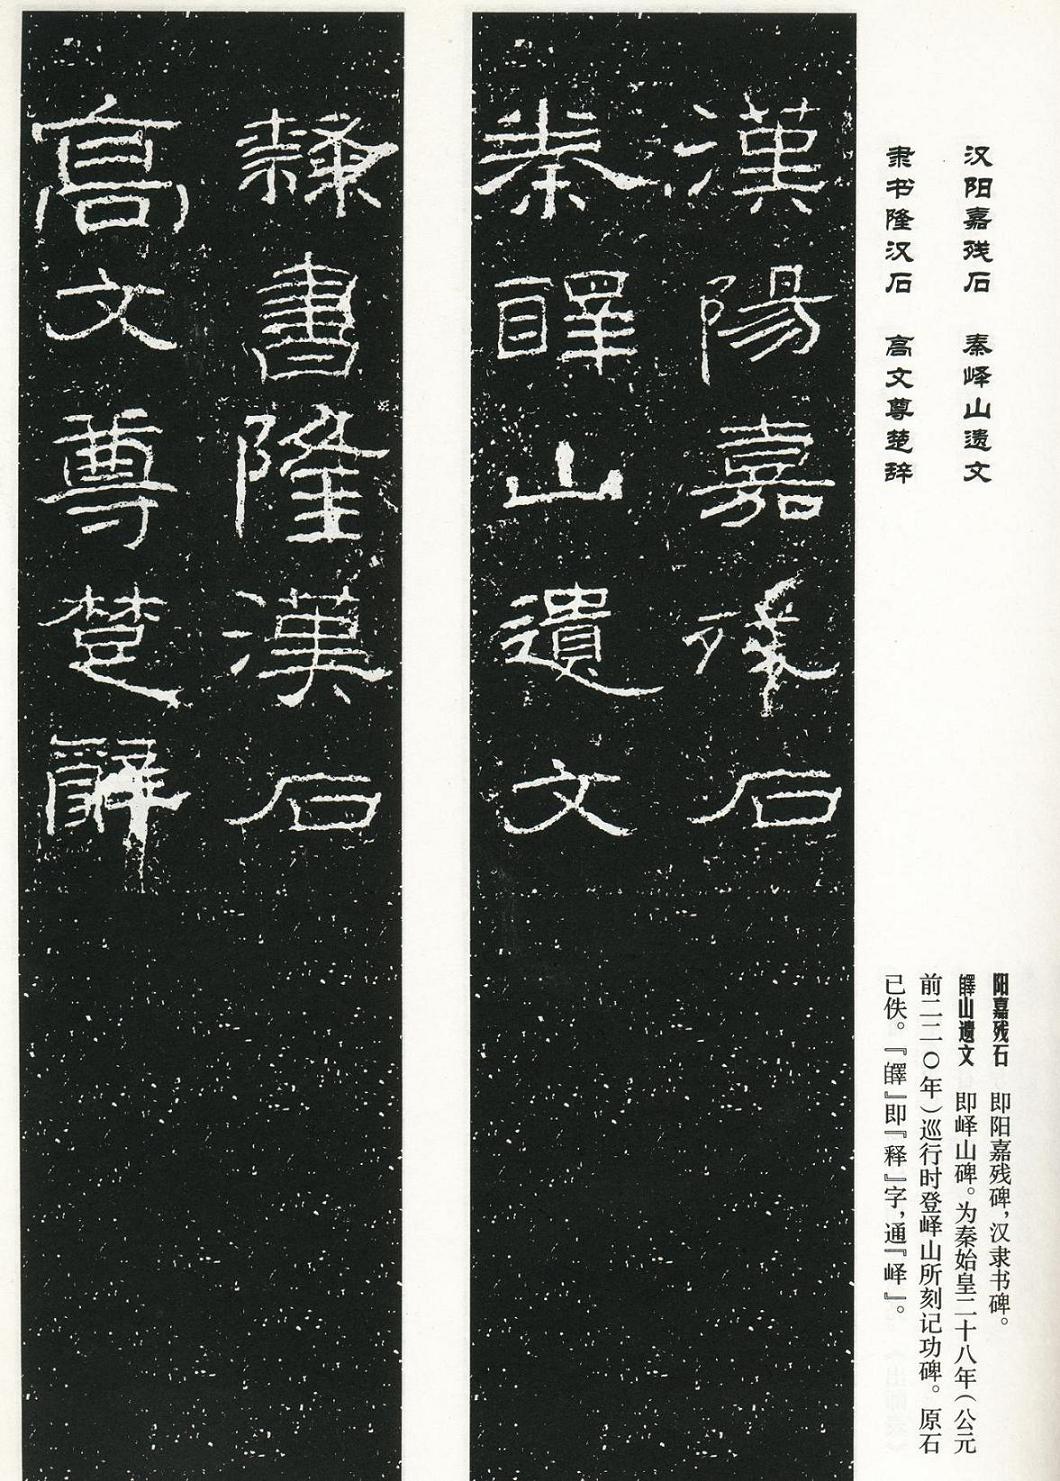 汉阳嘉残石　秦峄山遗文
隶书隆汉石　高文尊楚辞
漢陽嘉残石
秦㚖山遺文
隸書隆漢石
高文尊楚辭
阳嘉残石　即阳嘉残碑，汉隶书碑。
山遗文　即峄山碑。为秦始皇二十八年（公元
前二二〇年）巡行时登峄山所刻记功碑。原石
已佚。『』即『释』字，通『峄』。